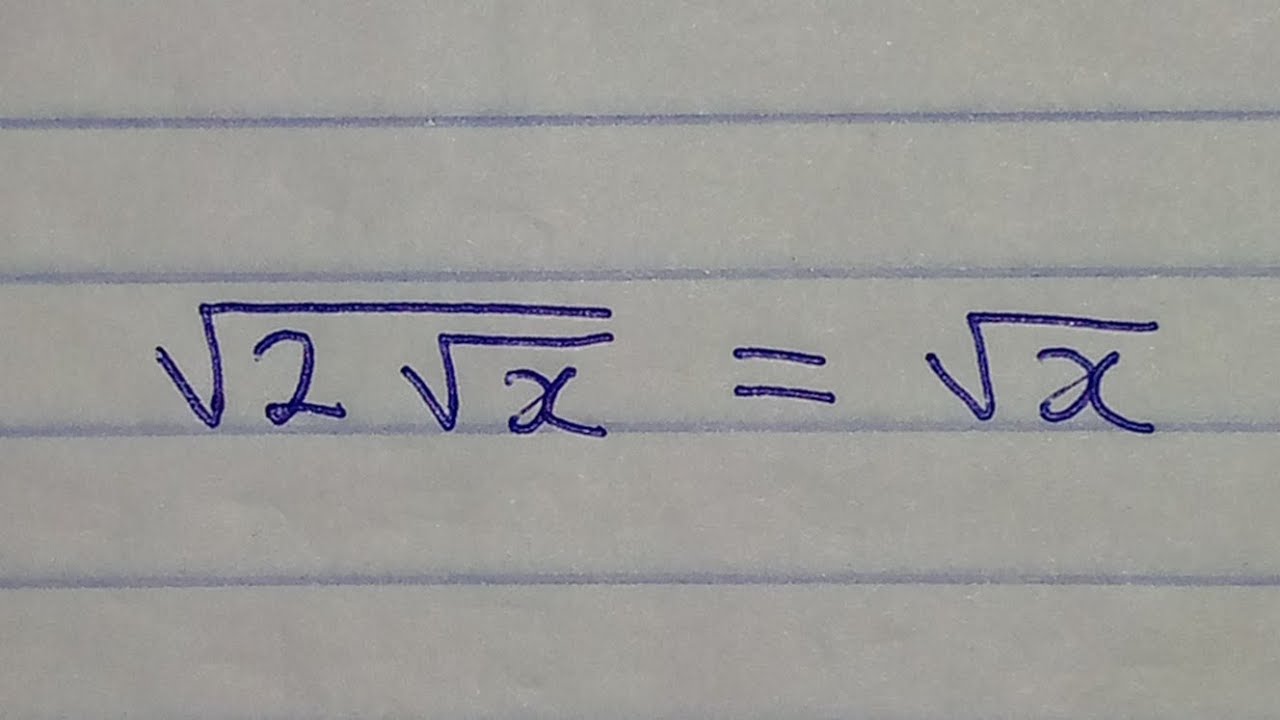 √(2√x) = √x